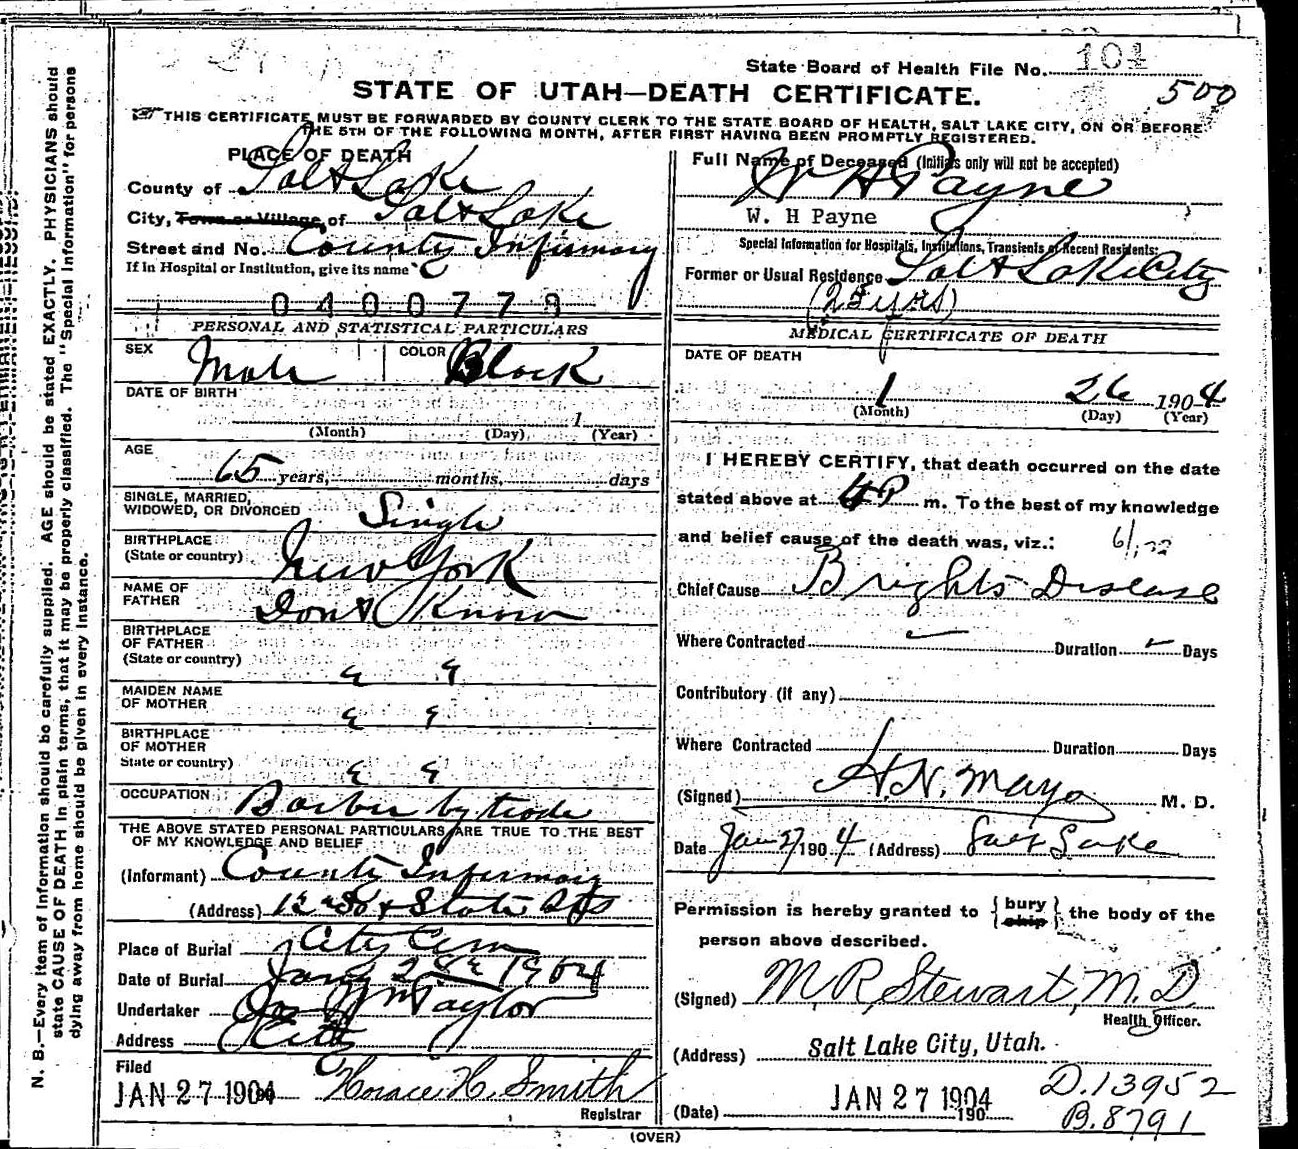 State Board of Health File No. 104
STATE OF UTAH—DEATH CERTIFICATE.
500
THIS CERTIFICATE MUST BE FORWARDED BY COUNTY CLERK TO THE STATE BOARD OF HEALTH, SALT LAKE CITY, ON OR BEFORE
THE 5TH OF THE FOLLOWING MONTH, AFTER FIRST HAVING BEEN PROMPTLY REGISTERED.
PLACE OF DEATH
County of Salt Lake
City, Town or Village of Salt Lake
Street and No. County Infirmary
If in Hospital or Institution, give its name
0400779
PERSONAL AND STATISTICAL PARTICULARS
SEX Male COLOR Black
DATE OF BIRTH
1
(Month) (Day) (Year)
AGE
65 years, months, days
SINGLE, MARRIED,
WIDOWED, OR DIVORCED Single
BIRTHPLACE
(State or country) New York
NAME OF
FATHER Dont Know
BIRTHPLACE
OF FATHER
(State or country) " "
MAIDEN NAME
OF MOTHER " "
BIRTHPLACE
OF MOTHER
State or country) " "
OCCUPATION Barber by trade
THE ABOVE STATED PERSONAL PARTICULARS ARE TRUE TO THE BEST
OF MY KNOWLEDGE AND BELIEF
(Informant) County Infirmary
(Address) & State Sts
Place of Burial City Cem
Date of Burial Jany 28 1904
Undertaker Jos Wm Taylor
Address City
Filed
JAN 27 1904 Horace H. Smith
Registrar
Full Name of Deceased (Initials only will not be accepted)
W H Payne
W. H Payne
Special Information for Hospitals, Institutions, Transients or Recent Residents:
Former or Usual Residence Salt Lake City
(25 yrs)
MEDICAL CERTIFICATE OF DEATH
DATE OF DEATH
1 26 1904
(Month) (Day) (Year)
I HEREBY CERTIFY, that death occurred on the date
stated above at 4 P m. To the best of my knowledge
and belief cause of the death was, viz.:
Chief Cause Brights Disease
Where Contracted Duration Days
Contributory (if any)
Where Contracted Duration Days
(Signed) H. N. Mayo M. D.
Date Jan 27 1904 (Address) Salt Lake
Permission is hereby granted to { bury ship } the body of the
person above described.
(Signed) M. R. Stewart, M. D.
Health Officer.
(Address) Salt Lake City, Utah.
JAN 27 1904
(Date) 190
D.13952
B.8791
(OVER)
N. B.—Every item of information should be carefully supplied. AGE should be stated EXACTLY. PHYSICIANS should
state CAUSE OF DEATH in plain terms, that it may be properly classified. The "Special Information" for persons
dying away from home should be given in every instance.